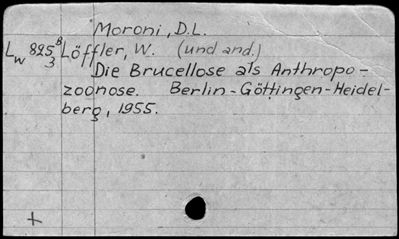 Moroni, D.L.
Lw 825 B/3 Löffler, W. (und and.)
Die Brucellose als Anthropo-
zoonose. Berlin-Göttingen-Heidel-
berg, 1955.
+